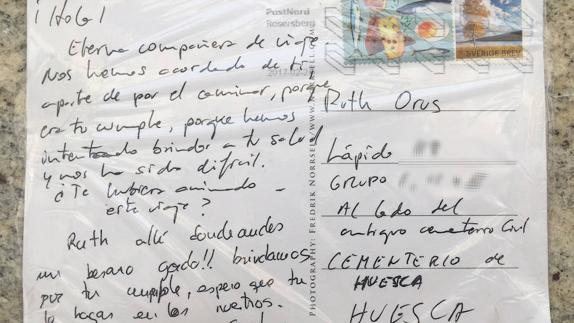 ¡Hola!
Eterna compañera de viaje
Nos hemos acordado de ti
aparte de por el caminar, porque
era tu cumple, porque hemos
intentado brindar a tu salud
y nos ha sido difícil.
¿Te hubiera animado
este viaje?
Ruth allí donde andes
un besazo gordo!! brindamos
por tu cumple, espero que tu
lo hagas en los nuestros.
PostNord
Rosersberg
SVERIGE BREV
PHOTOGRAPHY: FREDRIK NORRSELL/WWW.NORRSELL.COM
Ruth Orus
Lápida
GRUPO
Al lado del
antiguo cementerio Civil
CEMENTERIO de
HUESCA
HUESCA